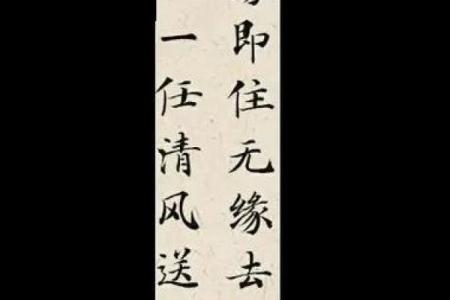 即住无缘去
一任清风送